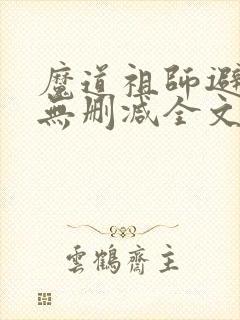 魔道祖師避
無刪減全文
雲鶴齋主